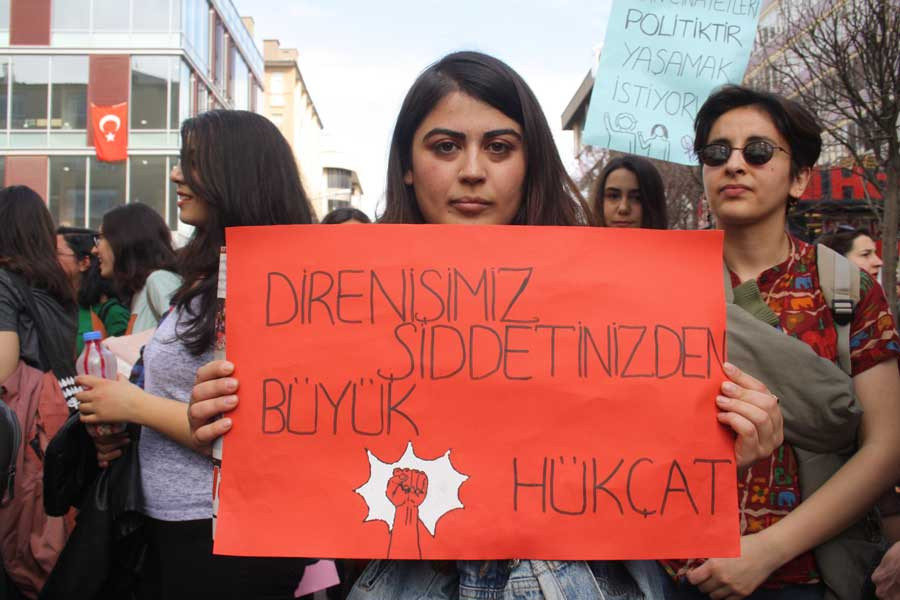 POLİTİKTİR
YAŞAMAK
İSTİYORU
DİRENİŞİMİZ
ŞİDDETİNİZDEN
BÜYÜK
HÜKÇAT